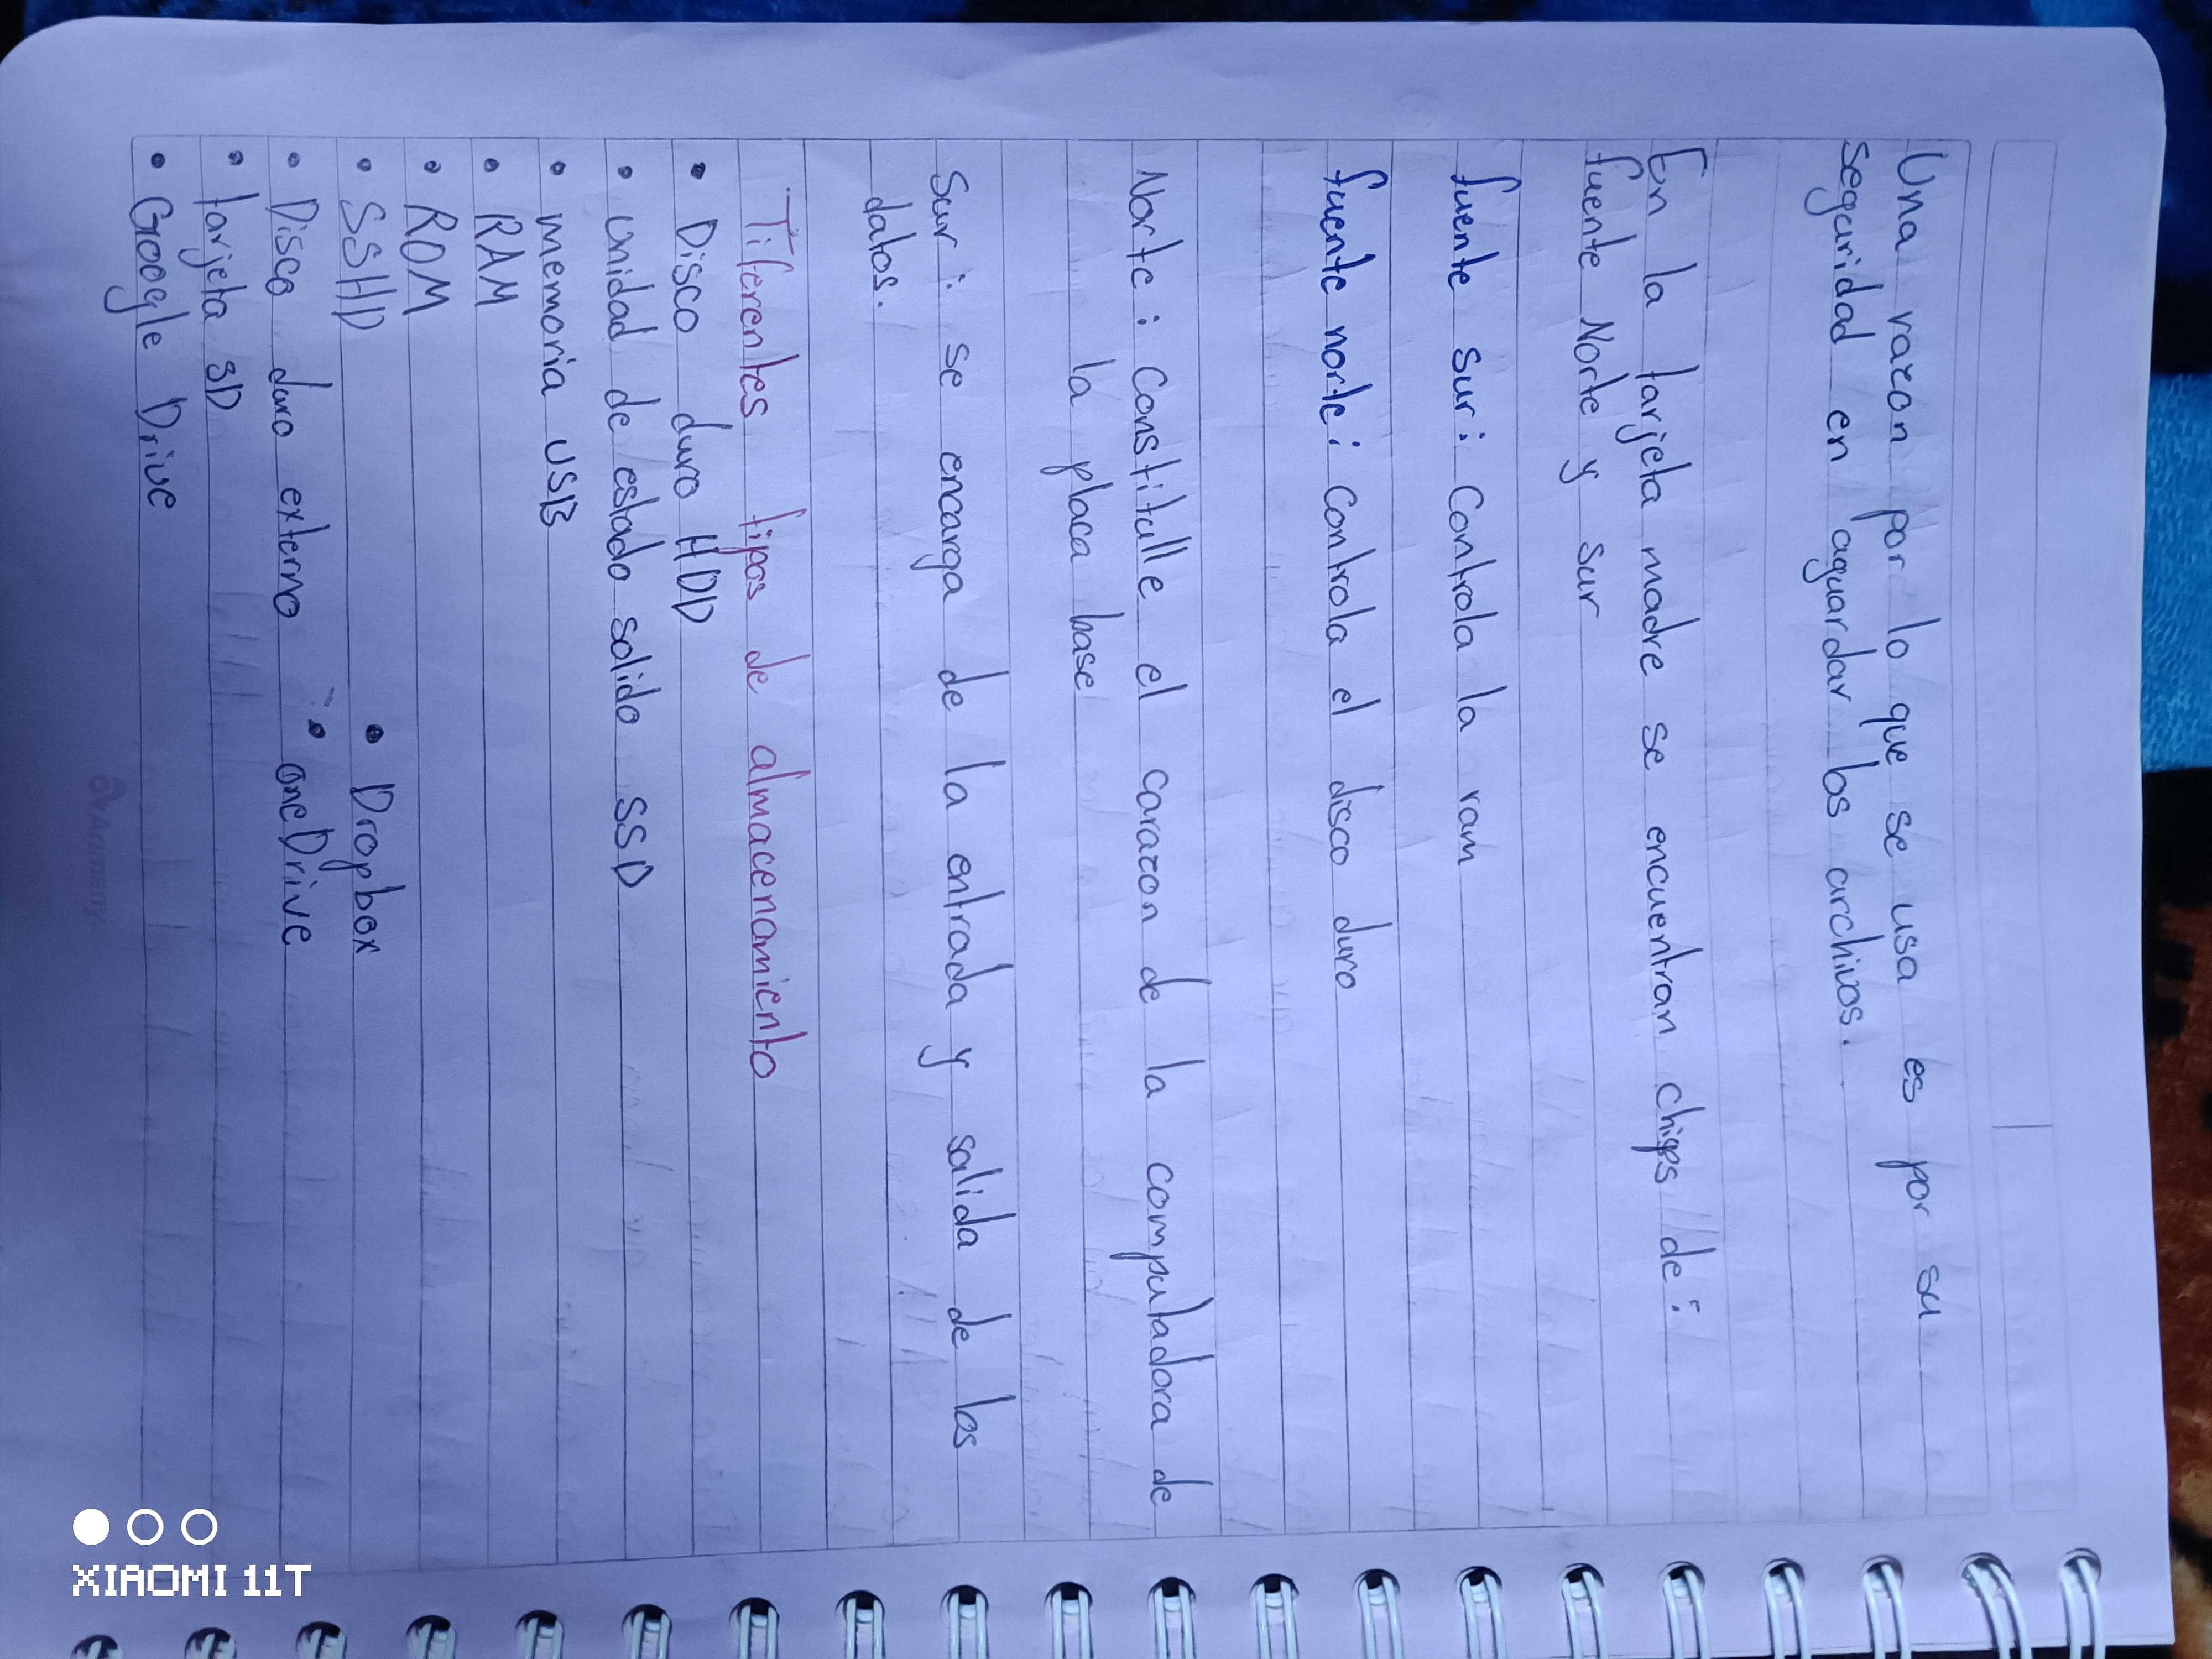 Una razon por lo que se usa es por su
seguridad en aguardar los archivos.
En la tarjeta madre se encuentran chips de:
fuente Norte y sur
fuente sur: Controla la ram
fuente norte: Controla el disco duro
Norte: Constitulle el carazon de la computadora de
la placa base
Sur: se encarga de la entrada y salida de los
datos.
Tiferentes tipos de almacenamiento
• Disco duro HDD
• unidad de estado solido SSD
• memoria USB
• RAM
• ROM
• SSHD
• Dropbox
• Disco duro externo
• oneDrive
• tarjeta SD
• Google Drive
Arimany
XIAOMI 11T